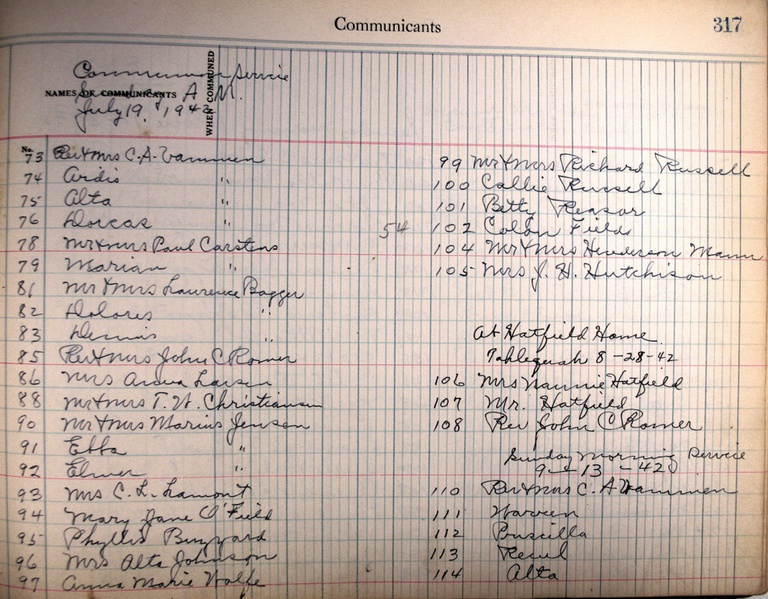 Communicants
317
Communion Service
NAMES OF COMMUNICANTS A M.
July 19, 1942
WHEN COMMUNED
No.
73 Rev & Mrs C. A. Vammen
74 Ardis "
75 Alta "
76 Dorcas "
78 Mr & Mrs Paul Carstens
79 Marian "
81 Mr & Mrs Laurence Bagger
82 Dolores "
83 Dennis "
85 Rev & Mrs John C Romer
86 Mrs Larsen
88 Mr & Mrs T. W. Christiansen
90 Mr & Mrs Marius Jensen
91 Ebba "
92 Elmer "
93 Mrs C. L. Lamont
94 Mary Jane O'Field
95 Phyllis Buzzard
96 Mrs Alta Johnson
97 Anna Marie Wolfe
99 Mr & Mrs Richard Russell
100 Callie Russell
101 Betty Reasor
54 102 Colon Fields
104 Mr & Mrs Henderson Mann
105 Mrs J. H. Hutchison
At Hatfield Home
Tahlequah 8-28-42
106 Mrs Nannie Hatfield
107 Mr. Hatfield
108 Rev John C Romer
Sunday Morning Service
9-13-42
110 Rev & Mrs C. A Vammen
111 Warren
112 Priscilla
113
114 Alta